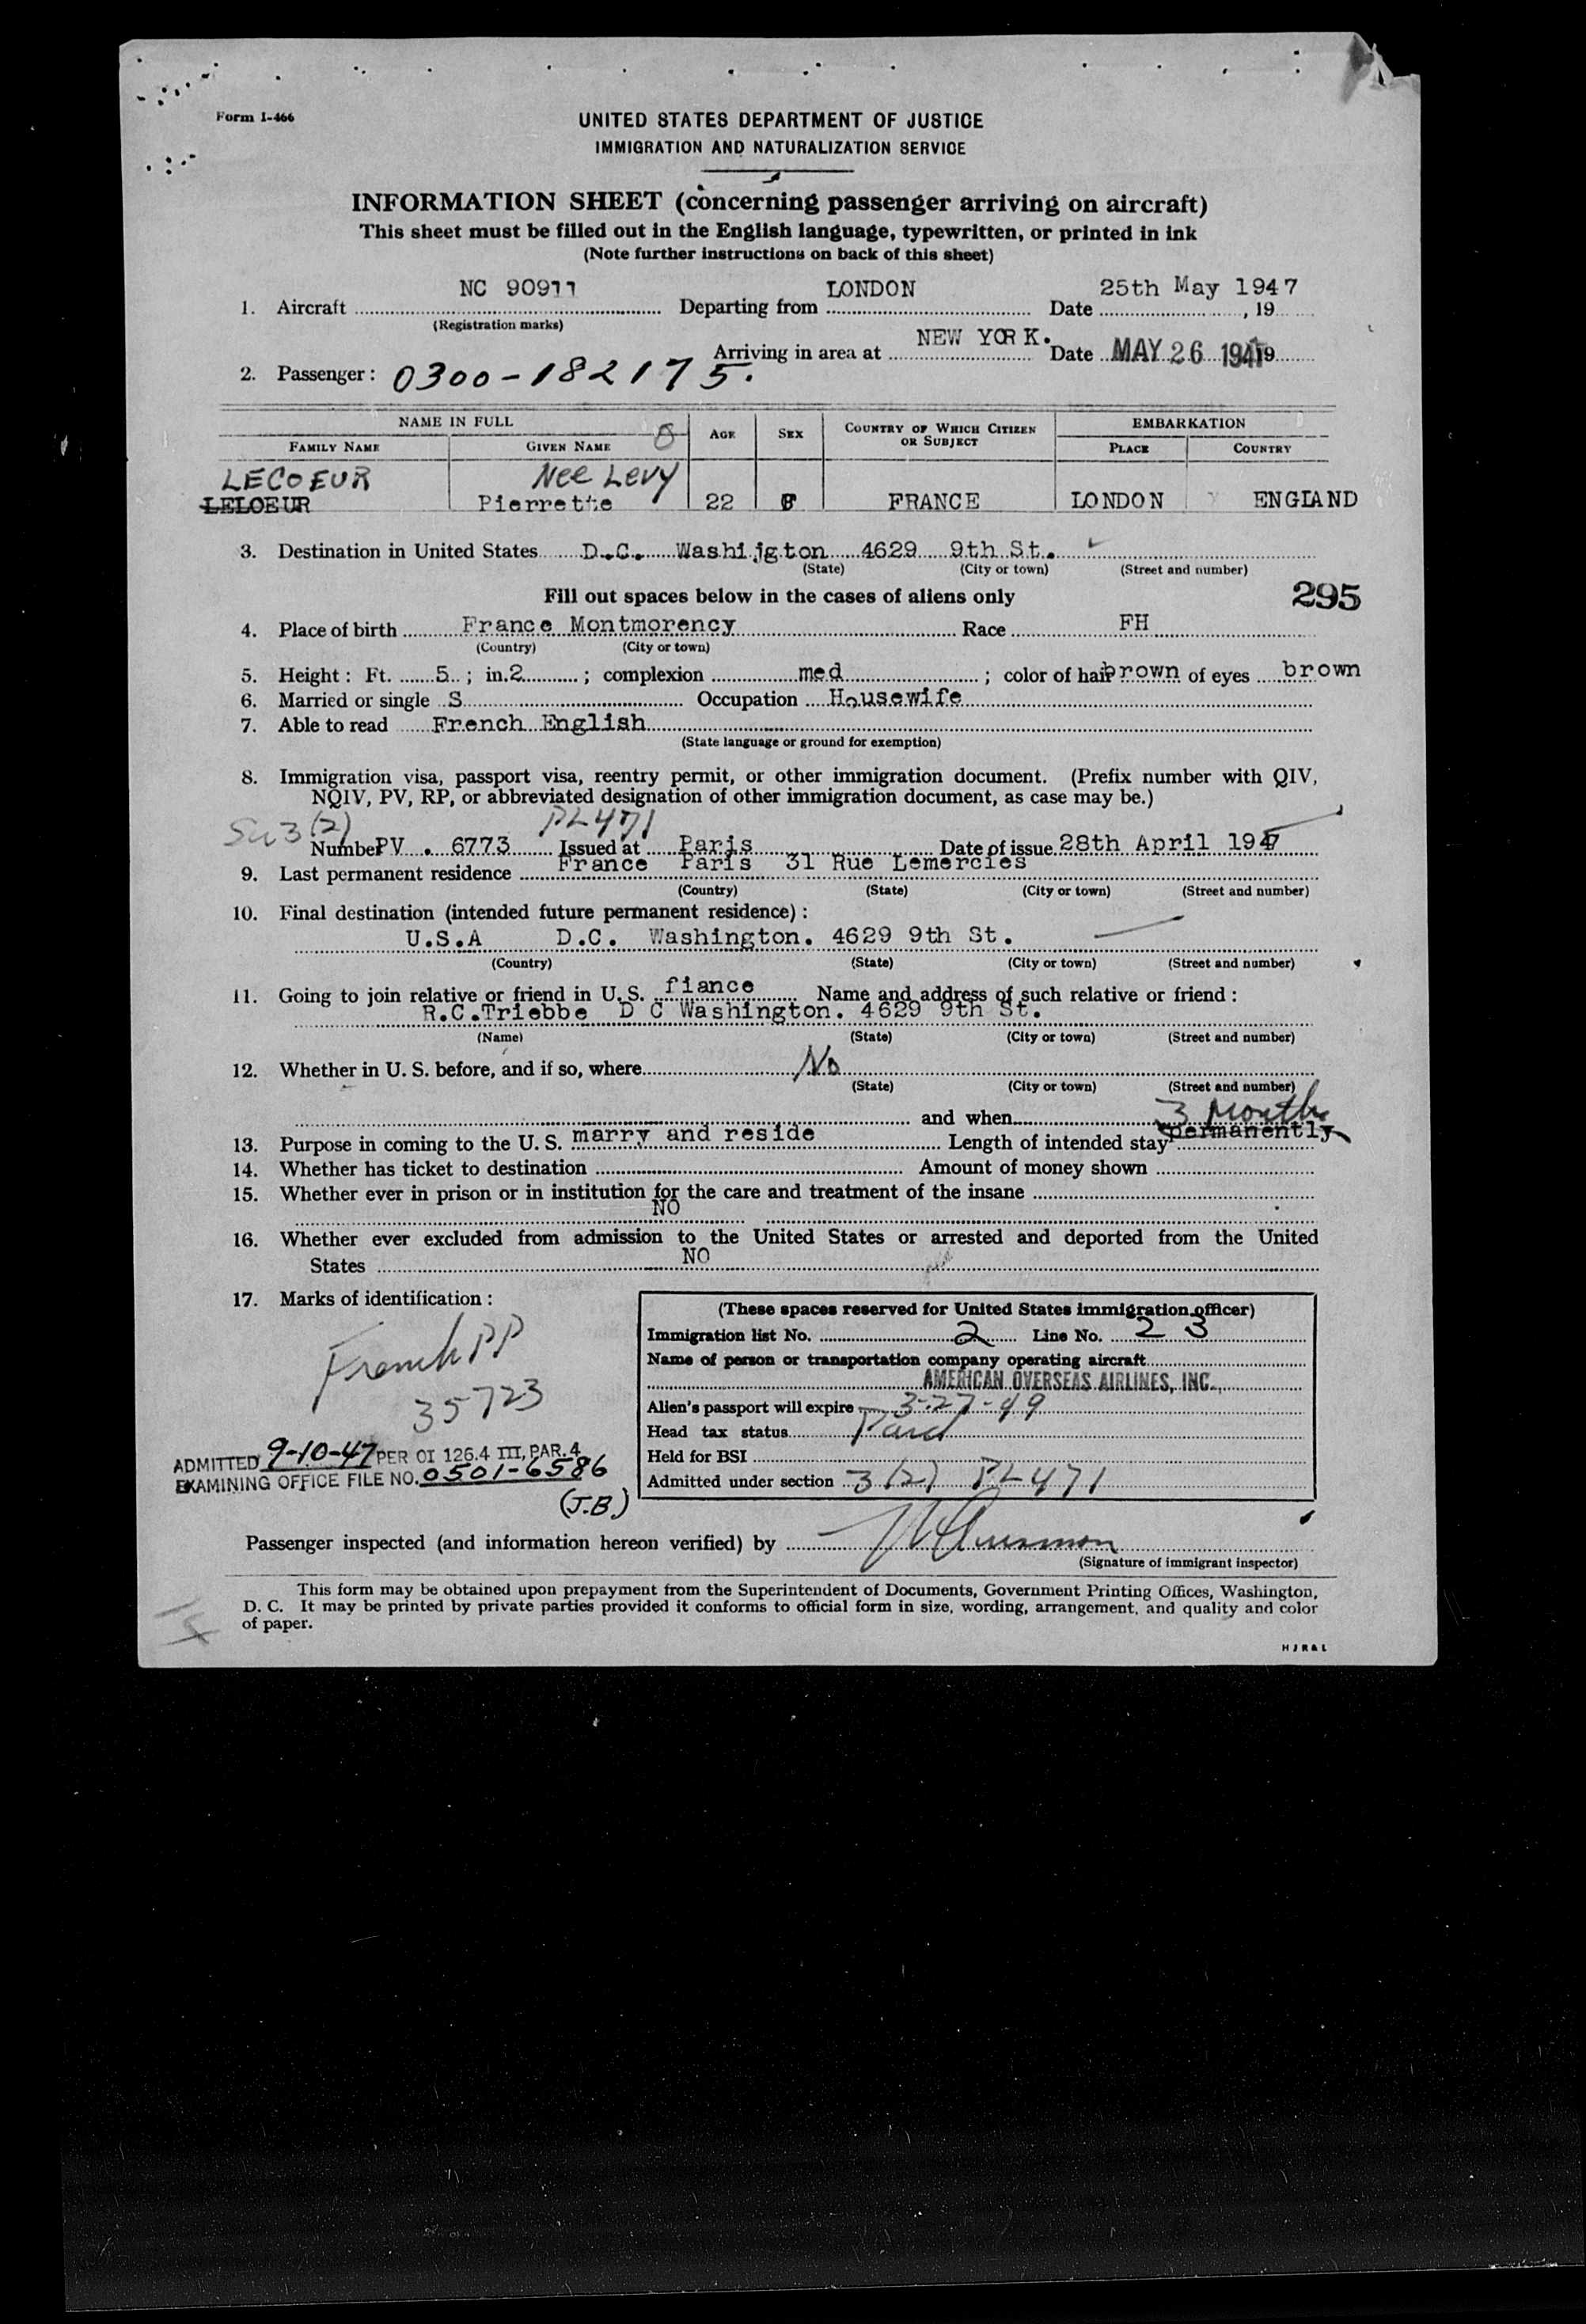 Form I-466
UNITED STATES DEPARTMENT OF JUSTICE
IMMIGRATION AND NATURALIZATION SERVICE
INFORMATION SHEET (concerning passenger arriving on aircraft)
This sheet must be filled out in the English language, typewritten, or printed in ink
(Note further instructions on back of this sheet)
1. Aircraft NC 90911 Departing from LONDON Date 25th May 1947, 19
(Registration marks)
Arriving in area at NEW YORK. Date MAY 26 1947 19
2. Passenger: 0300-182175.
NAME IN FULL 8 AGE SEX COUNTRY OF WHICH CITIZEN OR SUBJECT EMBARKATION
FAMILY NAME GIVEN NAME PLACE COUNTRY
LECOEUR Nee Levy
LELOEUR Pierrette 22 F FRANCE LONDON ENGLAND
3. Destination in United States D.C. Washijgton 4629 9th St.
(State) (City or town) (Street and number)
Fill out spaces below in the cases of aliens only 295
4. Place of birth France Montmorency Race FH
(Country) (City or town)
5. Height: Ft. 5; in. 2; complexion med; color of hair brown of eyes brown
6. Married or single S Occupation Housewife
7. Able to read French English
(State language or ground for exemption)
8. Immigration visa, passport visa, reentry permit, or other immigration document. (Prefix number with QIV,
NQIV, PV, RP, or abbreviated designation of other immigration document, as case may be.)
3(2) PL471
Number PV . 6773 Issued at Paris Date of issue 28th April 1947
9. Last permanent residence France Paris 31 Rue Lemercies
(Country) (State) (City or town) (Street and number)
10. Final destination (intended future permanent residence):
U.S.A D.C. Washington. 4629 9th St.
(Country) (State) (City or town) (Street and number)
11. Going to join relative or friend in U. S. fiance Name and address of such relative or friend:
R.C.Triebbe D C Washington. 4629 9th St.
(Name) (State) (City or town) (Street and number)
12. Whether in U. S. before, and if so, where No
(State) (City or town) (Street and number)
and when 3 Months
13. Purpose in coming to the U. S. marry and reside Length of intended stay permanently
14. Whether has ticket to destination Amount of money shown
15. Whether ever in prison or in institution for the care and treatment of the insane
NO
16. Whether ever excluded from admission to the United States or arrested and deported from the United
States NO
17. Marks of identification:
French PP
35723
(These spaces reserved for United States immigration officer)
Immigration list No. 2 Line No. 23
Name of person or transportation company operating aircraft
AMERICAN OVERSEAS AIRLINES, INC.
Alien's passport will expire 3-27-49
Head tax status Paid
Held for BSI
Admitted under section 3(2) PL471
ADMITTED 9-10-47 PER OI 126.4 III, PAR. 4
EXAMINING OFFICE FILE NO. 0501-6586
(J.B.)
Passenger inspected (and information hereon verified) by
(Signature of immigrant inspector)
This form may be obtained upon prepayment from the Superintendent of Documents, Government Printing Offices, Washington,
D. C. It may be printed by private parties provided it conforms to official form in size, wording, arrangement, and quality and color
of paper.
H J R & L